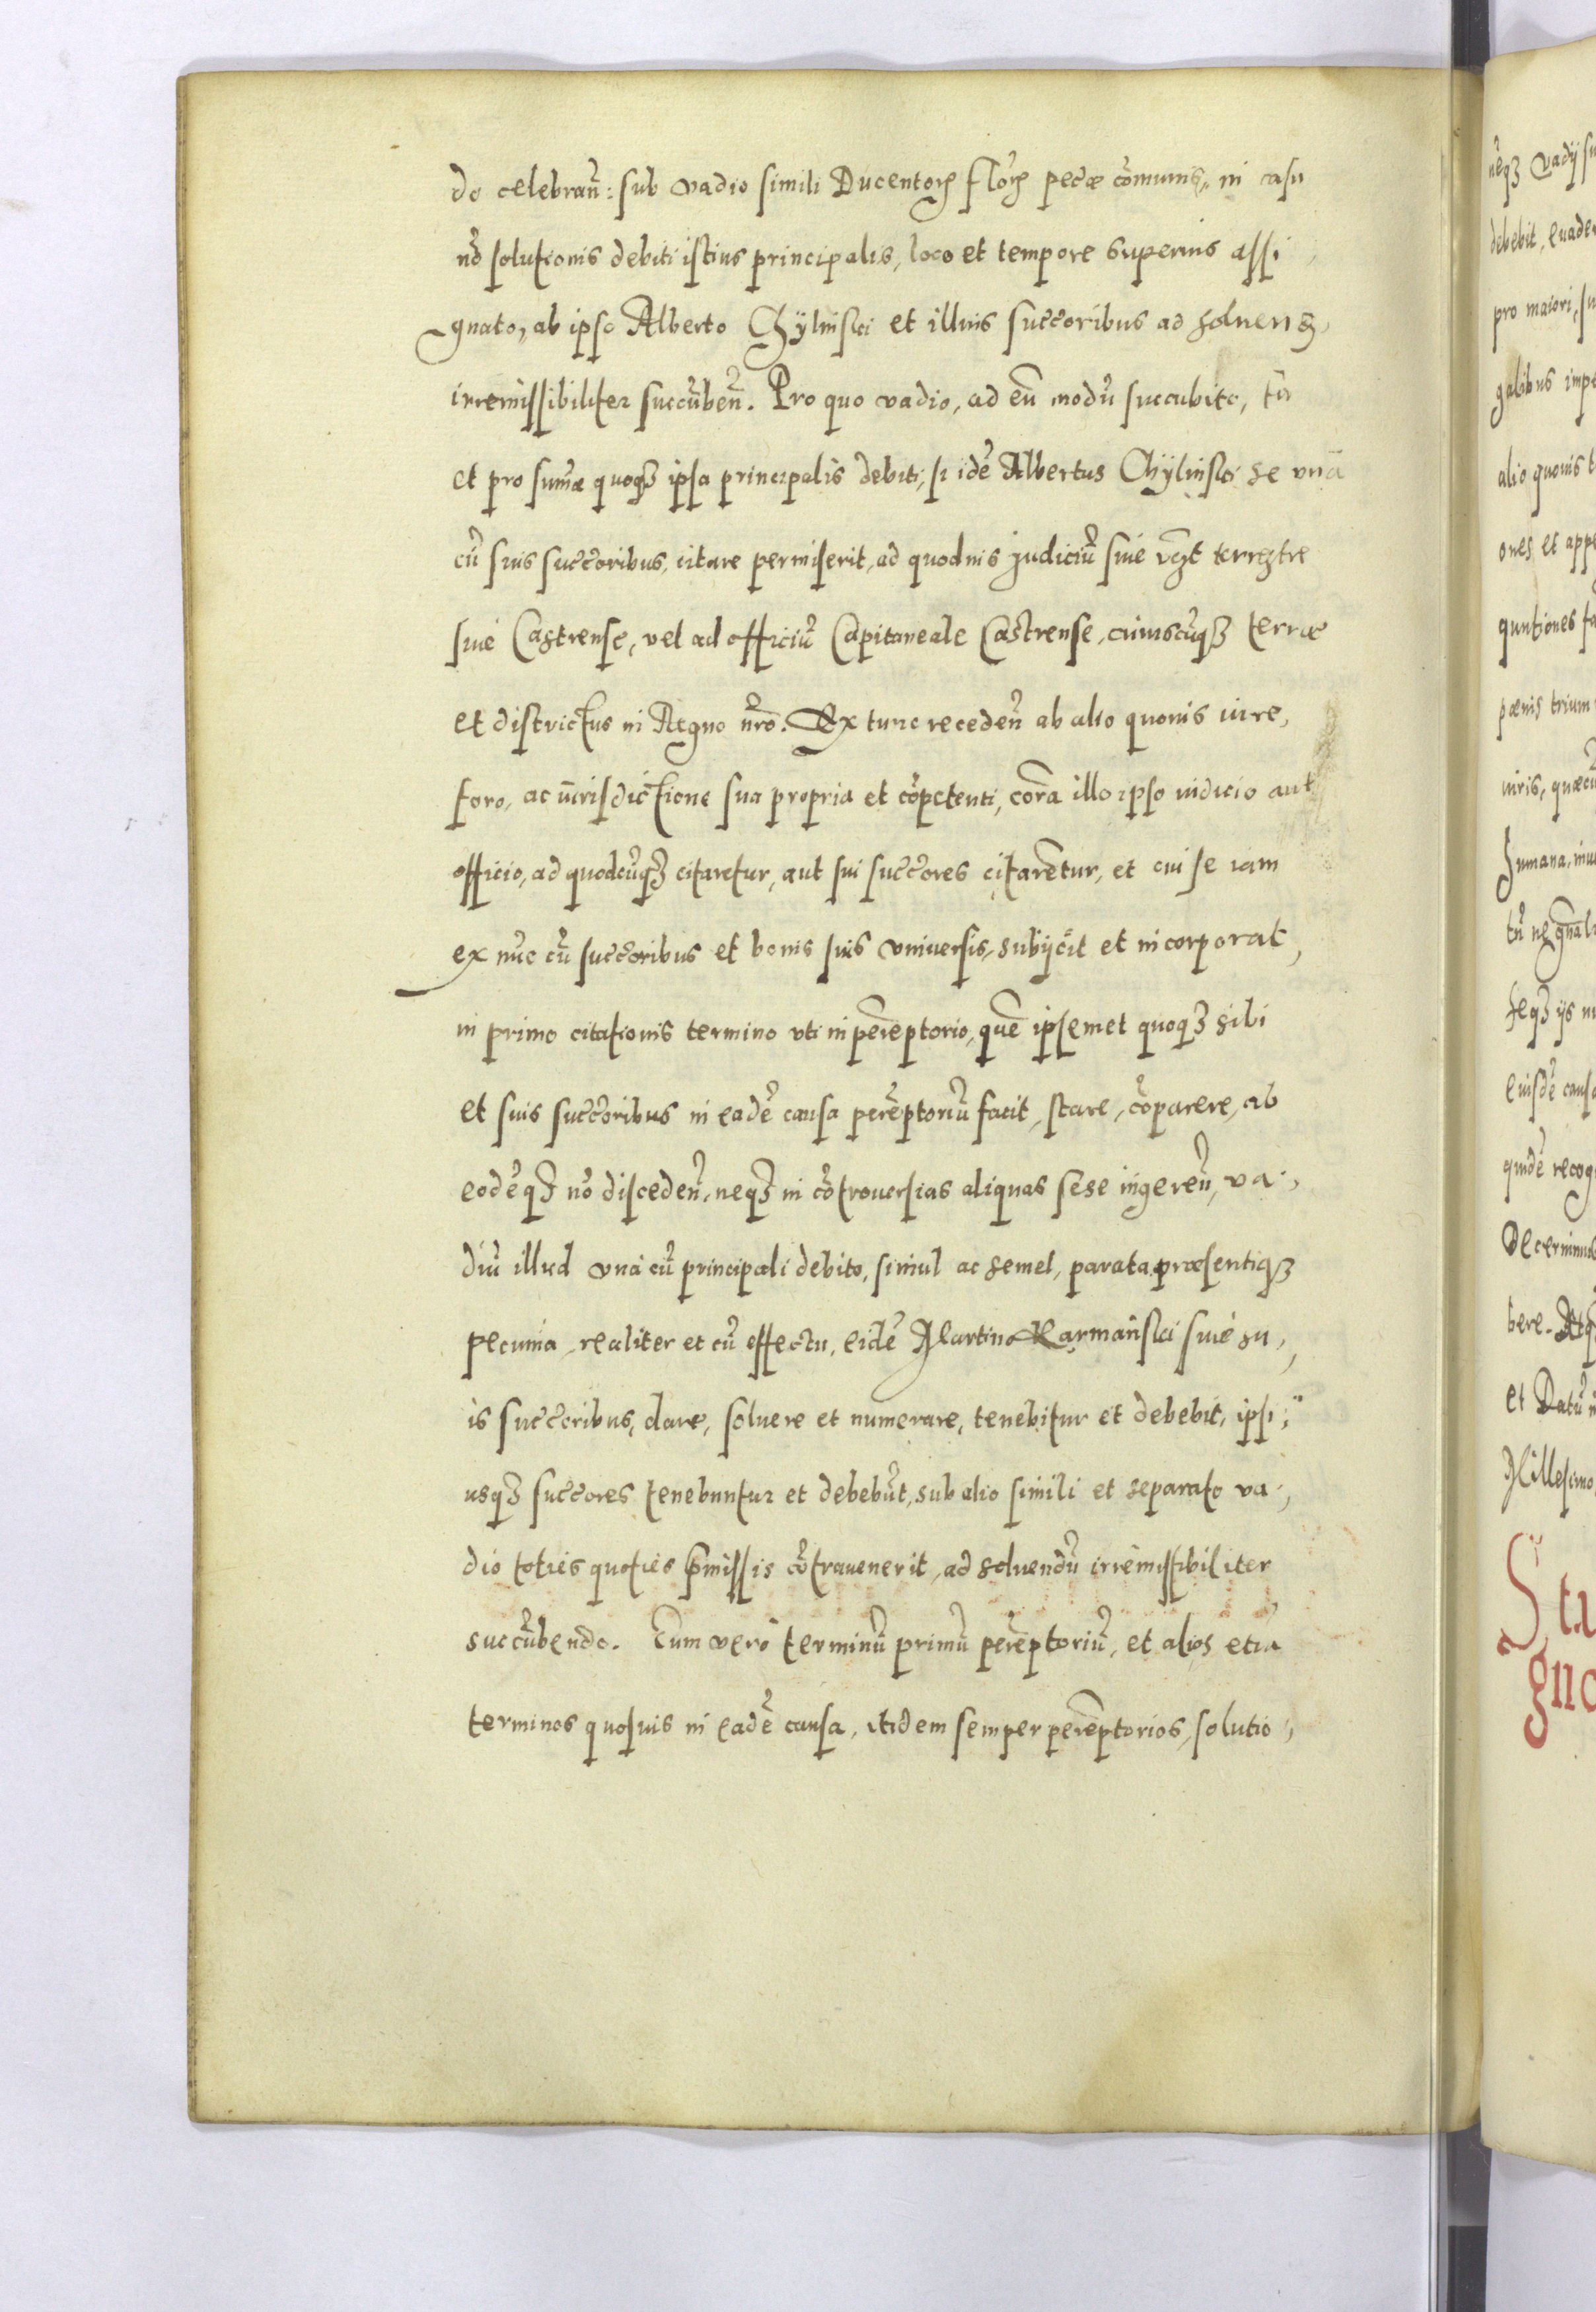 do celebrañ: sub vadio simili Ducentoꝝ floꝝ pecæ cōmunis, in casu
nō solutionis debiti istius principalis, loco et tempore superius assi
gnato, ab ipso Alberto Chÿlinski et illius succoribus ad solueñ
irremissibiliter succūbeñ. Pro quo vadio, ad eū modū succubito, tā
et pro sum̄æ quoqꝫ ipsa principalis debiti, si idē Albertus Chÿlinski se unà
cū suis succoribus, citare permiserit, ad quoduis judiciū siue terrestre
siue Castrense, vel ad officiū Capitaneale Castrense, cuiuscūqꝫ terræ
et districtus in Regno nrō. Ex tunc recedeñ ab alio quouis iure,
foro, ac iurisdictione sua propria et cōpetenti, corā illo ipso iudicio aut
officio, ad quodcūqꝫ citaretur, aut sui succores citarētur, et cui se iam
ex nūc cū succoribus et bonis suis vniuersis, subijcit et incorporat,
in primo citationis termino vti in perēptorio, quē ipsemet quoqꝫ sibi
et suis succoribus in eadē causa perēptoriū facit, stare, cōparere, ab
eodēqꝫ nō discedeñ, neqꝫ in cōtrouersias aliquas sese ingereñ, va,
diū illud vnà cū principali debito, simul ac semel, parata præsentiqꝫ
pecunia, realiter et cū effectu, eidē Martino Karmański siuè su,
is succoribus, dare, soluere et numerare, tenebitur et debebit, ipsi,
usqꝫ succores tenebuntur et debebūt, sub alio simili et separato va,
dio toties quoties p̄missis cōtrauenerit, ad soluendū irremissibiliter
succūbendo. Eum verò terminū primū perēptoriū, et alios etiā
terminos quosuis in eadē causa, itidem semper perēptorios, solutio,
nēqꝫ vadij
debebit, euade
pro maiori, su
galibus imp
alio quouis t
ones et app
pœnis trium
iuris, quæcū
humana,
eiusdē causa
quidē recog
Decernimus
bere.
et Datū
Millesimo,
Stu
gno